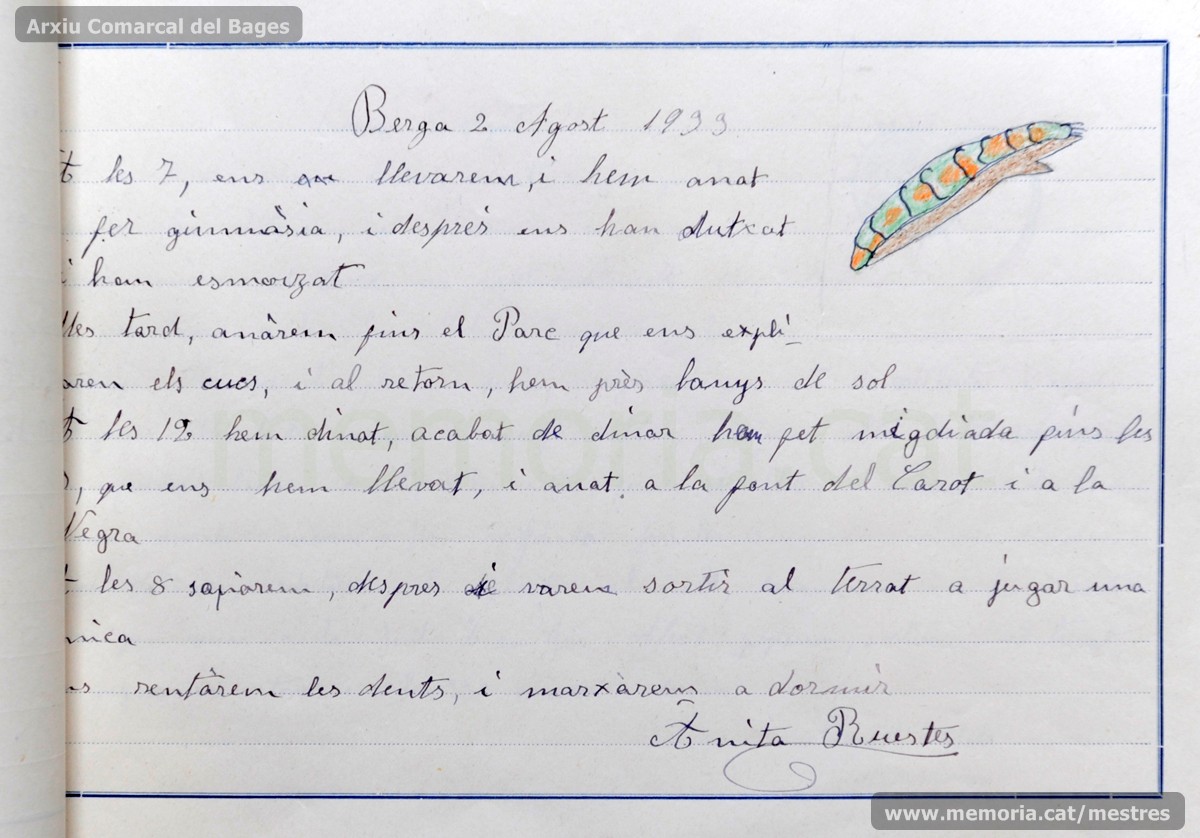 Arxiu Comarcal del Bages
Berga 2 Agost 1933
t les 7, ens llevarem, i hem anat
fer gimnàsia, i després ens han dutxat
i han esmorzat
Mes tard, anàrem fins el Parc que ens expli_
aren els cucs, i al retorn, hem près banys de sol
t les 12 hem dinat, acabat de dinar hem fet migdiada fins les
, que ens hem llevat, i anat a la font del Carot i a la
Negra
t les 8 sopàrem, despres varem sortir al terrat a jugar una
mica
ns rentàrem les dents, i marxàrem a dormir
Anita Ruestes
memoria.cat
www.memoria.cat/mestres